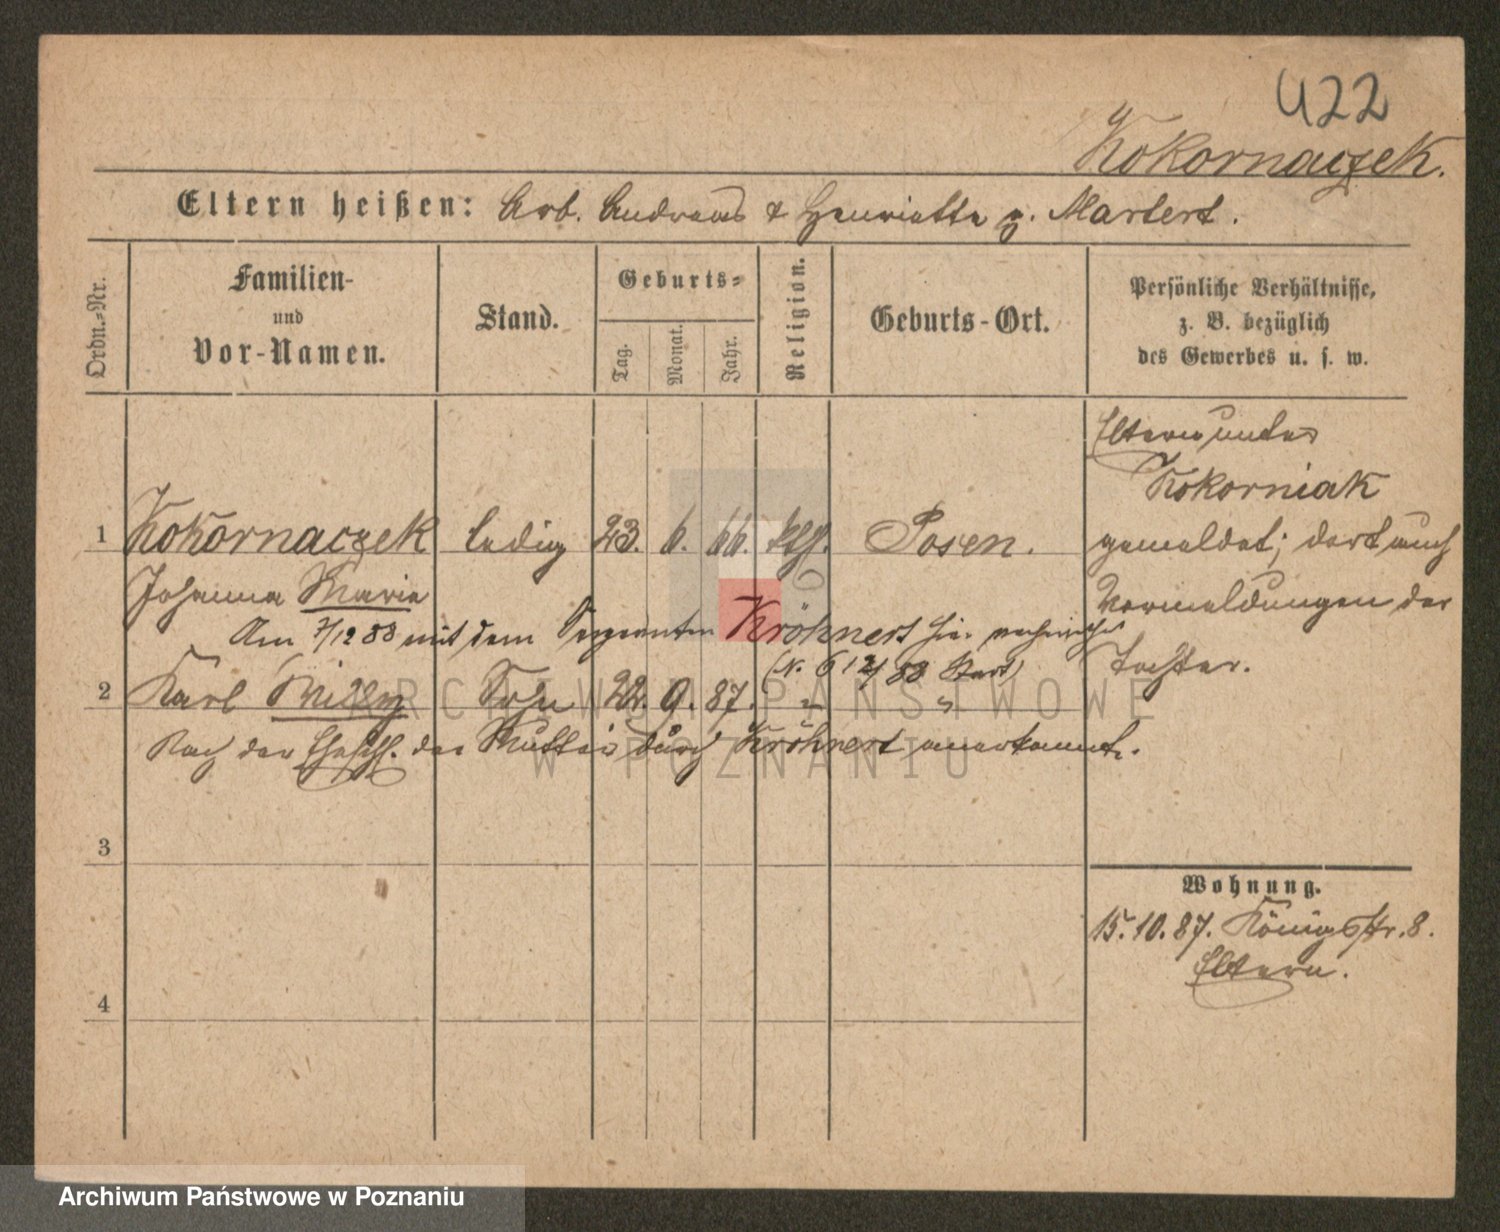 422
Kokornaczek.
Eltern heißen: Arb. Andreas & Henriette g. Martert.
Ordn.-Nr.
Familien-
und
Vor-Namen.
Stand.
Geburts-
Tag.
Monat.
Jahr.
Religion.
Geburts-Ort.
Persönliche Verhältnisse,
z. B. bezüglich
des Gewerbes u. s. w.
Eltern unter
Kokorniak
gemeldet; dort auch
Vormeldungen der
Tochter.
1 Kokornaczek ledig 23. 6. 66. kth. Posen.
Johanna Maria
Am 7/12 88 mit dem Sergeanten Kröhnert hier
2 Karl Willy Sohn 22. 9. 87. " "
Nach der Eheschl. der Mutter durch Kröhnert anerkannt.
3
4
Wohnung.
15.10.87. Königstr. 8.
Eltern.
ARCHIWUM PAŃSTWOWE
W POZNANIU
Archiwum Państwowe w Poznaniu